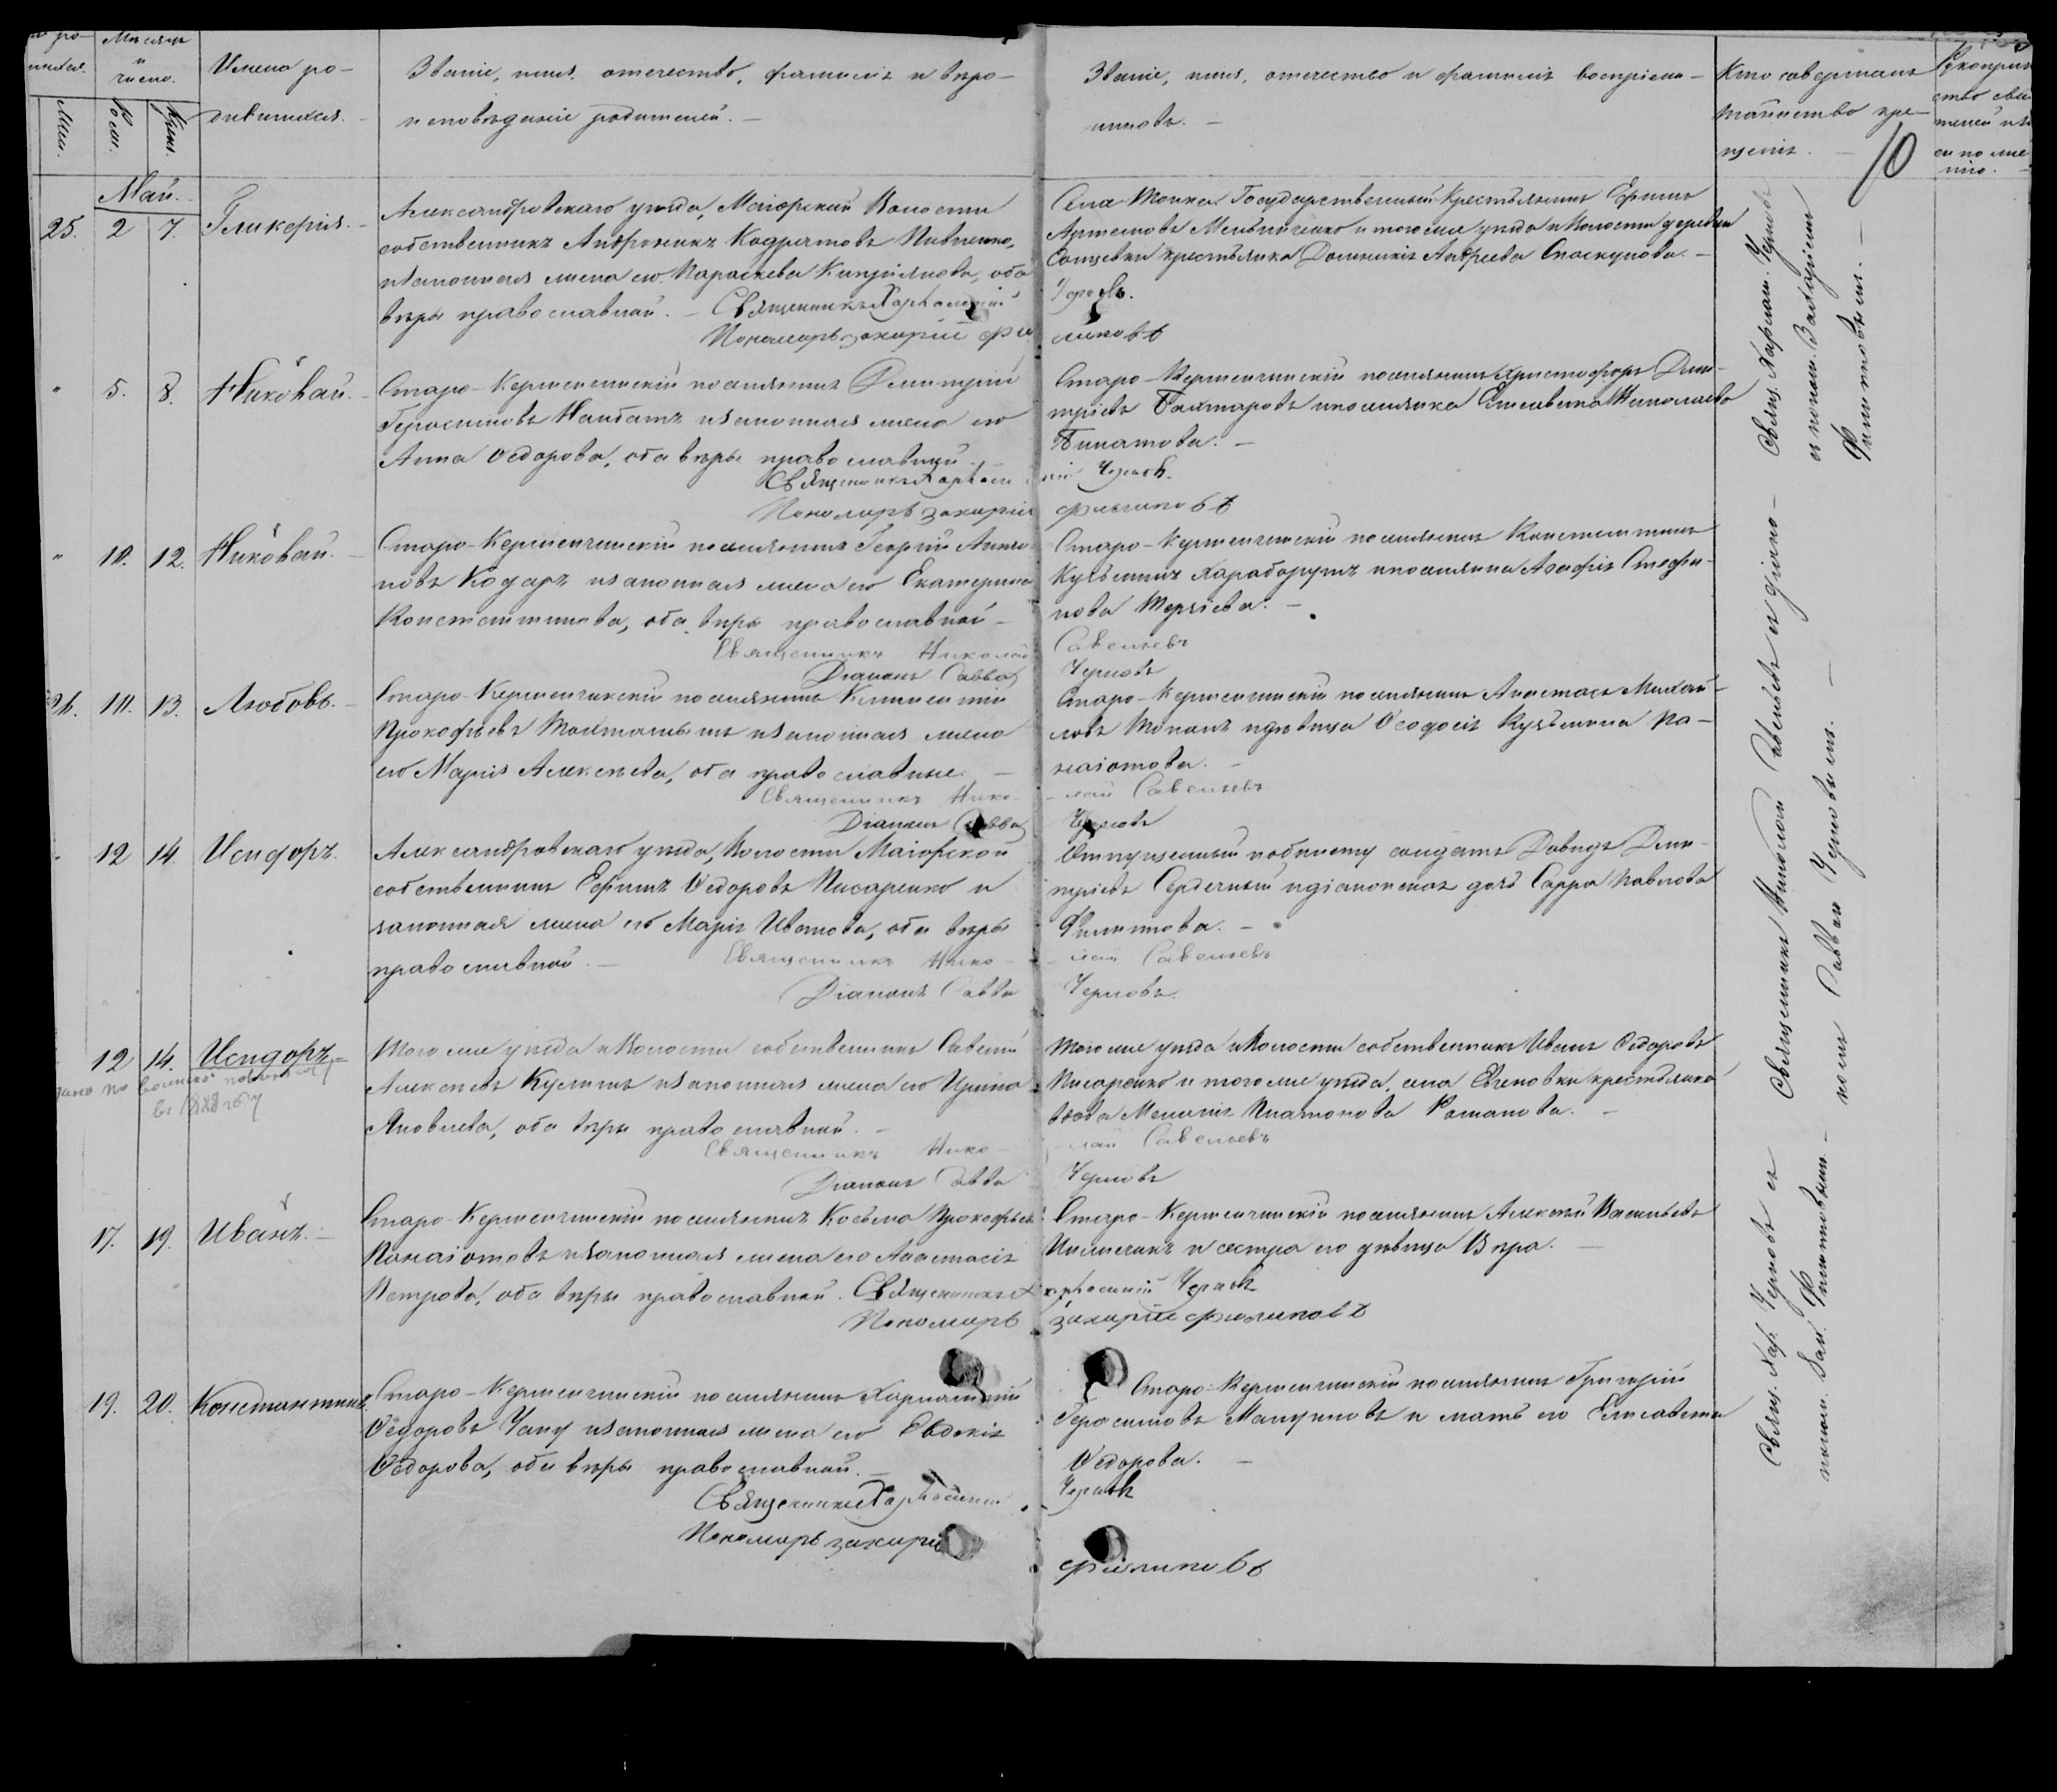 Мѣсяцъ
и
число.
Имена ро-
дившихся.
Званіе, имя, отечество, фамилія и вѣро-
исповѣданіе родителей. —
Званіе, имя, отечество и фамилія воспріем-
никовъ. —
Кто совершалъ
таинство кре-
щенія. —
10
Май.
25. 2 7. Гликерія. —
Александровскаго уѣзда, Маіорской Волости
собственникъ Андроникъ Кодратовъ Пивненко,
и законная жена его Параскева Кипріянова, оба
вѣры православной. — Священникъ Харлампій
Пономарь Захарій Фи
Села Времьевки Государственный Крестьянинъ Ефимъ
Артемовъ Мельниченко и того же уѣзда и Волости деревни
крестьянка Домникія Андреева
Черновъ.
липовъ
" 5. 8. Николай. —
Старо-Керменчикскій поселянинъ Димитрій
Герасимовъ Найбатъ и законная жена его
Анна Ѳедорова, оба вѣры православной. —
Священникъ Харламп
Пономарь Захарій
Старо-Керменчикскій поселянинъ Христофоръ Дми-
тріевъ Бахтаровъ и поселянка Елисавета Николаева
—
ій Черновъ
Филиповъ
" 10. 12. Николай. —
Старо-Керменчикскій поселянинъ Георгій Анто-
новъ Кодаръ и законная жена его Екатерина
Константинова, оба вѣры православной —
Священникъ Николай
Діаконъ Савва
Старо-Керменчикскій поселянинъ Константинъ
Кузьминъ Харабоучъ и поселянка Агафія Стефа-
нова Терзіева. —
Савельевъ
Черновъ
26. 11. 13. Любовь. —
Старо-Керменчикскій поселянинъ Климентій
Прокофьевъ Тохтамышъ и законная жена
его Марія Алексѣева, оба православные —
Священникъ Нико-
Діаконъ Савва
Старо-Керменчикскій поселянинъ Анастасъ Михай-
ловъ Топалъ и дѣвица Ѳеодосія Кузьмина Па-
наіотова. —
-лай Савельевъ
Черновъ
12 14. Исидоръ.
Александровскаго уѣзда, Волости Маіорской
собственникъ Ефимъ Ѳедоровъ Писаренко и
законная жена его Марія Иванова, оба вѣры
православной. — Священникъ Нико-
Діаконъ Савва
Отпущенный по билету солдатъ Давидъ Дми-
тріевъ Сердечный и діаконская дочь Сарра Павлова
Филиппова. —
-лай Савельевъ
Черновъ.
12 14. Исидоръ —
по воинской повинности
въ 1888 году
Того же уѣзда и Волости собственникъ Савелій
Алексѣевъ Кулишъ и законная жена его Ирина
Яковлева, оба вѣры православной. —
Священникъ Нико-
Діаконъ Савва
Того же уѣзда и Волости собственникъ Иванъ Ѳедоровъ
Писаренко и того же уѣзда, села Евгеновки крестьянка
вдова Меланія Платонова Романова. —
лай Савельевъ
Черновъ
17. 19. Иванъ. —
Старо-Керменчикскій поселянинъ Косьма Прокофьевъ
Панаіотовъ и законная жена его Анастасія
Петрова, оба вѣры православной. Священникъ Х
Пономарь
Старо-Керменчикскій поселянинъ Алексѣй Васильевъ
и сестра его дѣвица Вѣра. —
арлампій Черновъ
Захарій Филиповъ
19. 20. Константинъ
Старо-Керменчикскій поселянинъ Харлампій
Ѳедоровъ Чапу и законная жена его Евдокія
Ѳедорова, оба вѣры православной. —
Священникъ Харлампій
Пономарь Захарій
Старо-Керменчикскій поселянинъ Григорій
Герасимовъ Мангушовъ и мать его Елисавета
Ѳедорова. —
Черновъ
Филиповъ
Свящ. Харламп. Черновъ
съ поном. Захаріемъ
Филипповымъ. —
Священникъ Николай Савельевъ съ діако-
номъ Саввою Черновымъ. —
Свящ. Хар. Черновъ съ
поном. Зах. Филипповымъ. —